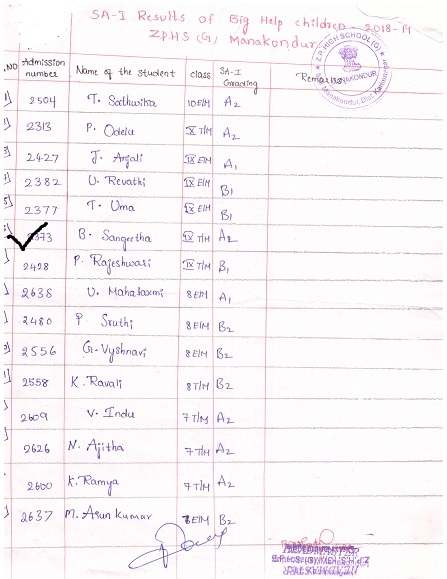 SA-I Results of Big Help children - 2018-19
Z.P.H.S (G), Manakondur
.NO Admission number Name of the student class SA-I Grading Remarks
2504 T. Sathwika 10 E/M A2
2313 P. Odelu X T/M A2
2427 J. Anjali IX E/M A1
2382 U. Revathi IX E/M B1
2377 T. Uma IX E/M B1
2373 B. Sangeetha IX T/M A2
2428 P. Rajeshwari IX T/M B1
2638 U. Mahalaxmi 8 E/M A1
2480 P Sruthi 8 E/M B2
2556 G. Vyshnavi 8 E/M B2
2558 K. Ravali 8 T/M B2
2609 V. Indu 7 T/M A2
2626 N. Ajitha 7 T/M A2
2600 K. Ramya 7 T/M A2
2637 M. Arun Kumar 8 E/M B2